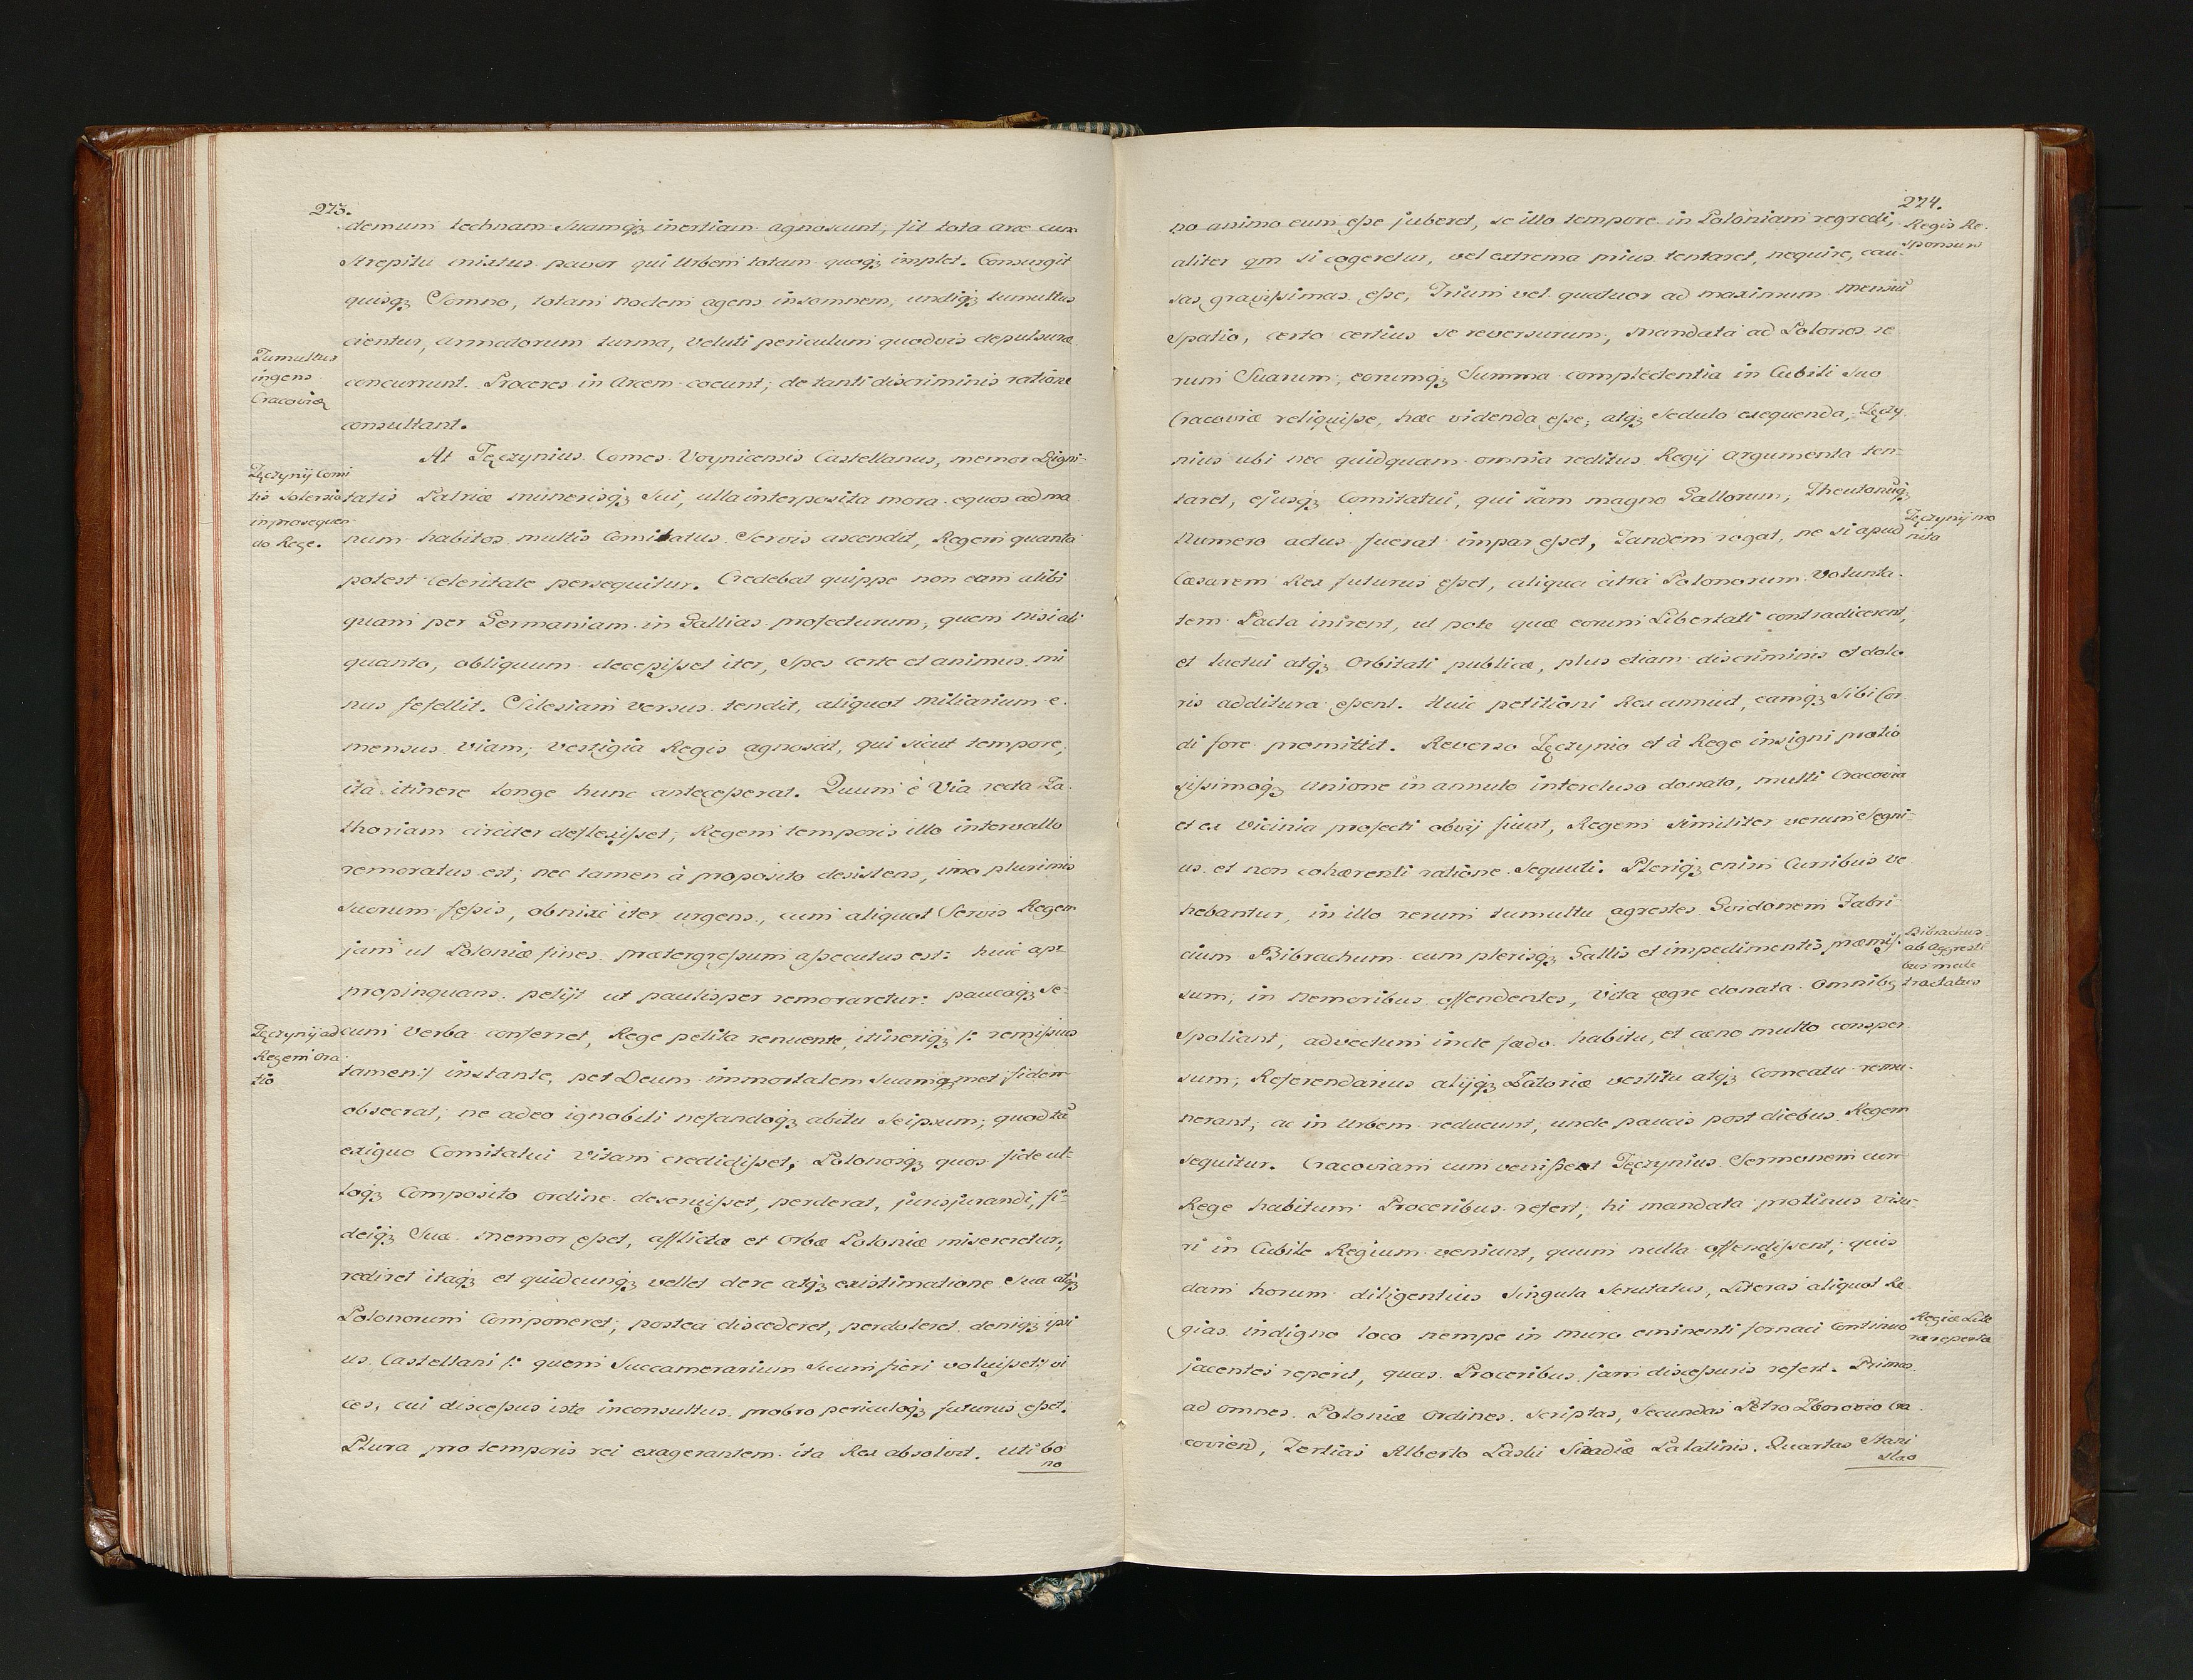 273.
demum technam suamqꝫ inertiam agnoscunt, fit tota arce cum
strepitu mixtus pavor qui Urbem totam quoqꝫ implet. Consurgit
quisqꝫ Somno, totam noctem agens insomnem, undiqꝫ tumultus
cientur, armatorum turma, veluti periculum quodvis depulsuræ
Tumultus
ingens
Cracoviæ
concurrunt. Proceres in Arcem coeunt; de tanti discriminis ratione
consultant.
At Tęczynius Comes Voynicensis Castellanus, memor Digni-
Tęczynij Comi
tis solersia
in prosequen
do Rege.
tatis Patriæ munerisqꝫ sui, ulla interposita mora equos ad ma
num habitos multis Comitatus Servis ascendit, Regem quanta
potest celeritate persequitur. Credebat quippe non eum alibi
quam per Germaniam in Gallias profecturum, quem nisi ali
quanto, obliquum decepisset iter, spes certe et animus mi
nus fefellit. Silesiam versus tendit, aliquot miliarium e-
mensus viam; vestigia Regis agnoscit, qui sicut tempore,
ita itinere longe hunc antecesserat. Quum è Via recta Za-
thoriam circiter deflexisset; Regem temporis illo intervallo
remoratus est; nec tamen à proposito desistens, imo plurimis
suorum fessis, obnixè iter urgens, cum aliquot Servis Regem
jam ut Poloniæ fines prætergressum assecutus est: huic ap-
propinquans petijt ut paulisper remoraretur: paucaqꝫ se-
Tęczynij ad
Regem Ora
tio
cum verba conferret, Rege petita renuente, itineriqꝫ /: remissius
tamen :/ instante, per Deum immortalem suamqꝫmet fidem
obsecrat, ne adeo ignobili nefandoqꝫ abitu Seipsum; quod tā
exiguo Comitatui Vitam credidisset, Polonosqꝫ quos fide ul-
loqꝫ Composito ordine deseruisset, perderat, jurisjurandi, fi-
deiqꝫ Suæ memor esset, afflictæ et Orbæ Poloniæ misereretur,
rediret itaqꝫ et quidcunqꝫ vellet de re atqꝫ existimatione Sua atqꝫ
Polonorum Componeret, postea discederet, perdoleret deniqꝫ ipsi
us Castellani /: quem Succamerarium Suum fieri voluisset :/ vi
ces, cui discessus iste inconsultus probro periculoqꝫ futurus esset.
Plura pro temporis rei exagerantem ita Rex absolvit. Uti bo
no
274.
no animo eum esse juberet, se illo tempore in Poloniam regredi,
Regis Re-
sponsum
aliter qm si cogeretur, vel extrema prius tentaret, nequire, cau-
sas gravissimas esse, Trium vel quatuor ad maximum mensiū
Spatio, certo certius se reversurum, mandata ad Polonos re
rum Suarum, eorumqꝫ Summa complectentia in Cubili Suo
Cracoviæ reliquisse, hæc videnda esse, atqꝫ Sedulo exequenda, Tęczy
nius ubi nec quidquam omnia reditus Regij argumenta ten-
taret, ejusqꝫ Comitatui, qui iam magno Gallorum, Theutonūqꝫ
numero actus fuerat impar esset, Tandem rogat, ne si apud
Tęczynij mo
nita
Cæsarem Rex futurus esset, aliqua citra Polonorum Volunta-
tem Pacta inirent, ut pote quæ eorum Libertati contradicerent,
et luctui atqꝫ Orbitati publicæ, plus etiam discriminis et dolo
ris additura essent. Huic petitioni Rex annuit, eamqꝫ Sibi Cor
di fore promittit. Reverso Tęczynio et à Rege insigni prætio
sissimoqꝫ Unione in annulo intercluso donato, multi Cracovia
et ex Vicinia profecti obvij fiunt, Regem similiter verum Segni-
us et non cohærenti ratione Sequuti. Pleriqꝫ enim Curribus ve
hebantur, in illo rerum tumultu agrestes Gvidonem Fabri-
cium Bibrachum cum plerisqꝫ Gallis et impedimentis præmis-
Bibrachus
ab Aggresti
bus male
tractatus
sum, in nemoribus offendentes, Vita ægre donata omnibꝫ
Spoliant, advectum inde fædo habitu, et cæno multo consper
sum, Referendarius alijqꝫ Zatoriæ vestitu atqꝫ comeatu remu-
nerant; ac in Urbem reducunt, unde paucis post diebus Regem
sequitur. Cracoviam cum venisset Tęczynius Sermonem cum
Rege habitum Proceribus refert; hi mandata protinus visu-
ri in Cubile Regium veniunt, quum nulla offendissent, quis
dam horum diligentius Singula Scrutatus, Literas aliquot Re-
gias indigno loco nempe in muro eminenti fornaci Continuo
Regiæ Lite
ræ repertæ
jacentes reperit, quas Proceribus jam discessuris refert. Primas
ad omnes Poloniæ Ordines scriptas, Secundas Petro Zborovio Cra
covien, Tertias Alberto Laski Siradiæ Palatinis. Quartas Stani
slao